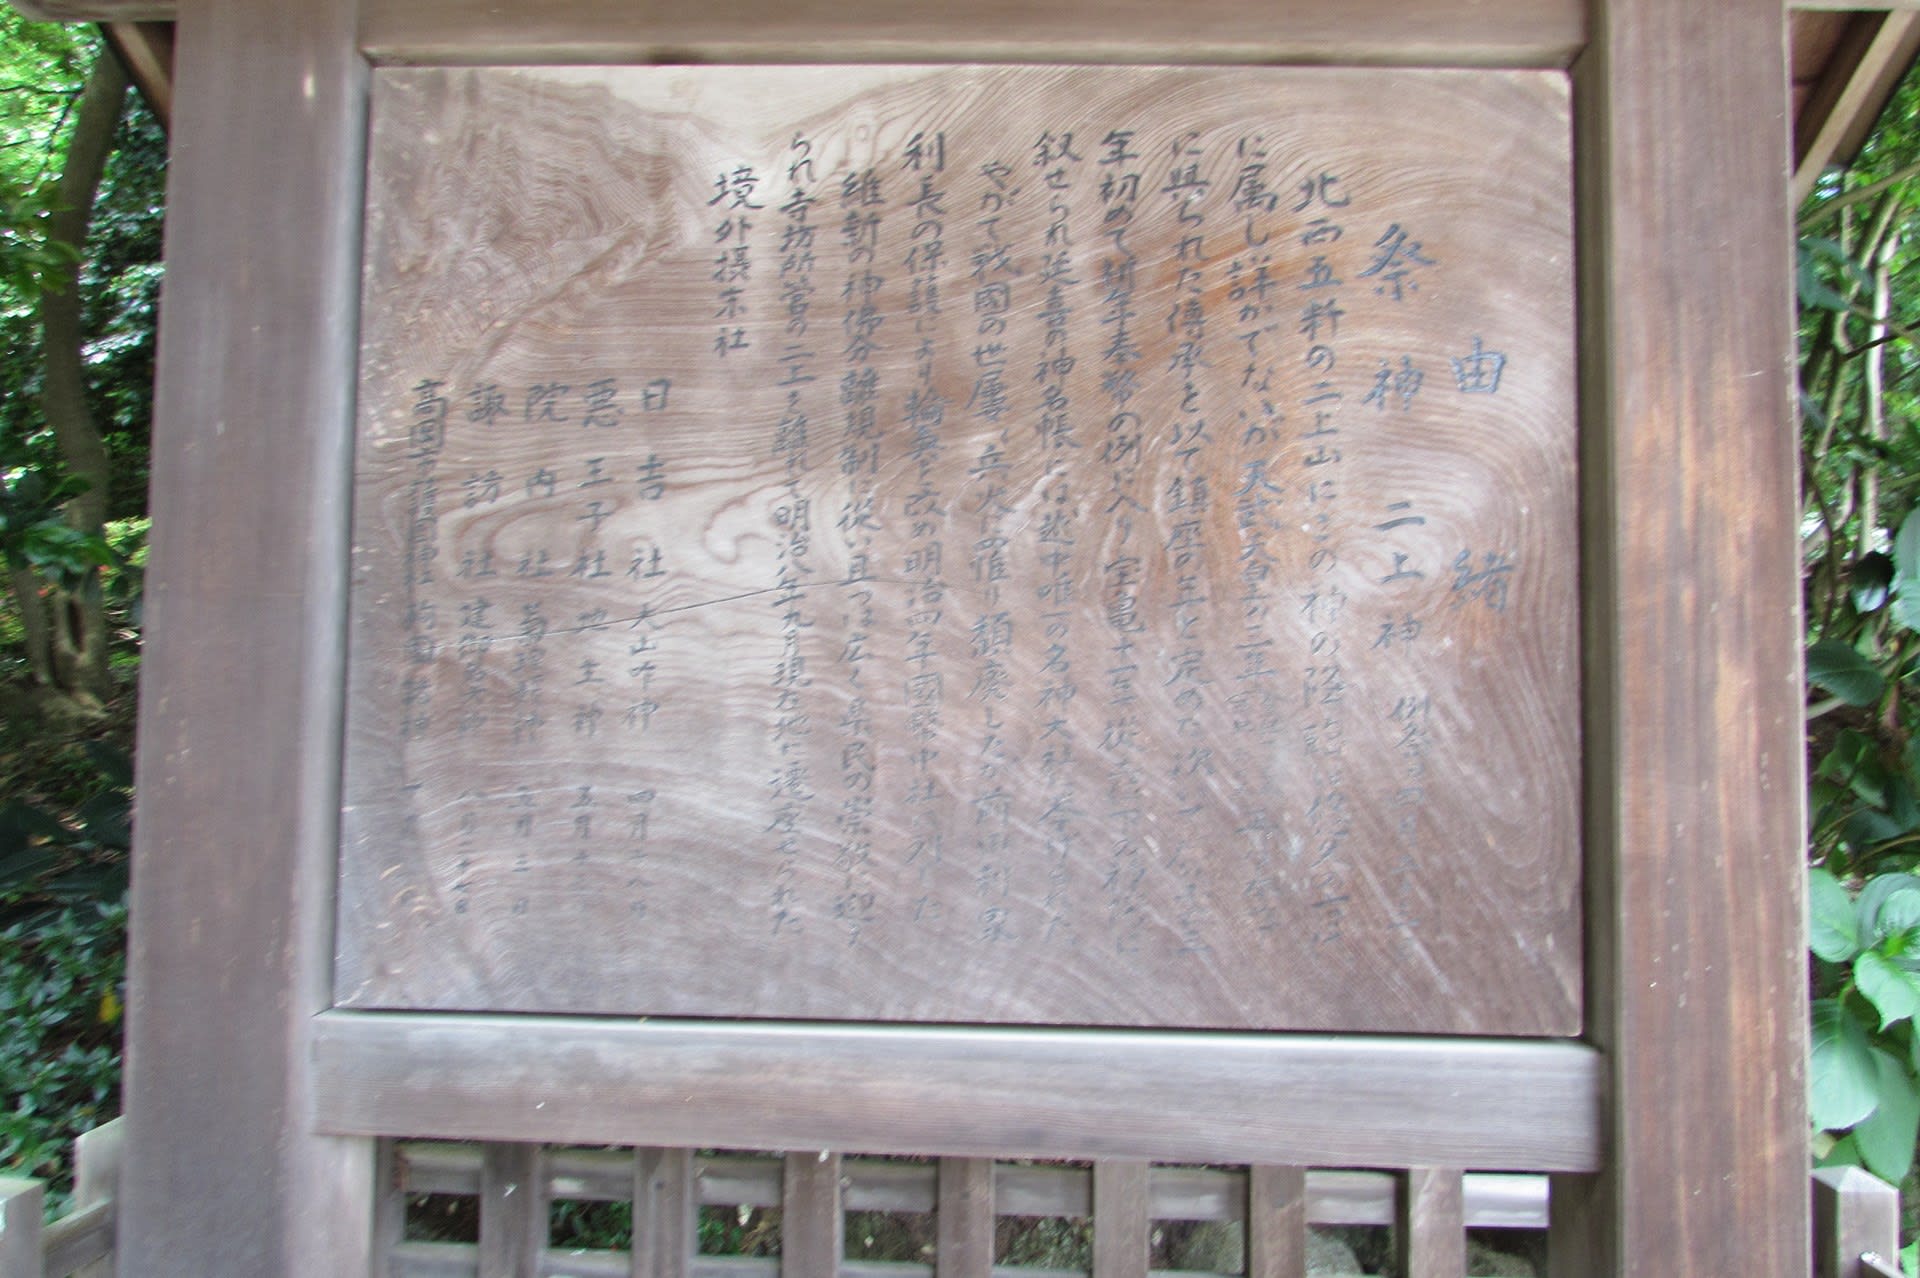 由緒
祭神 二上神 例祭
北西五粁の二上山にこの神の降臨
に属し詳かでないが天武天皇の二年
に與られた傳承を以て鎮座の年と定めた次い
年初めて祈年奉幣の例に入り宝亀十一年従
叙せられ延喜の神名帳には越中唯一の名神大社に挙げられた
やがて戦國の世屡々兵火に罹り頽廃したが前田利家
利長の保護により輪奐を改め明治四年國幣中社に列した
維新の神佛分離規制に従い且つは広く県民の崇敬に迎え
られ寺坊所営の二上を離れて明治八年九月現在地に遷座せられた
境外摂末社
日吉社 大山咋神 四月十八日
悪王子社 地主神 五月
院内社 菊理媛神 五月三日
諏訪社 建御名方神 八月二十七日
高岡市護国神社